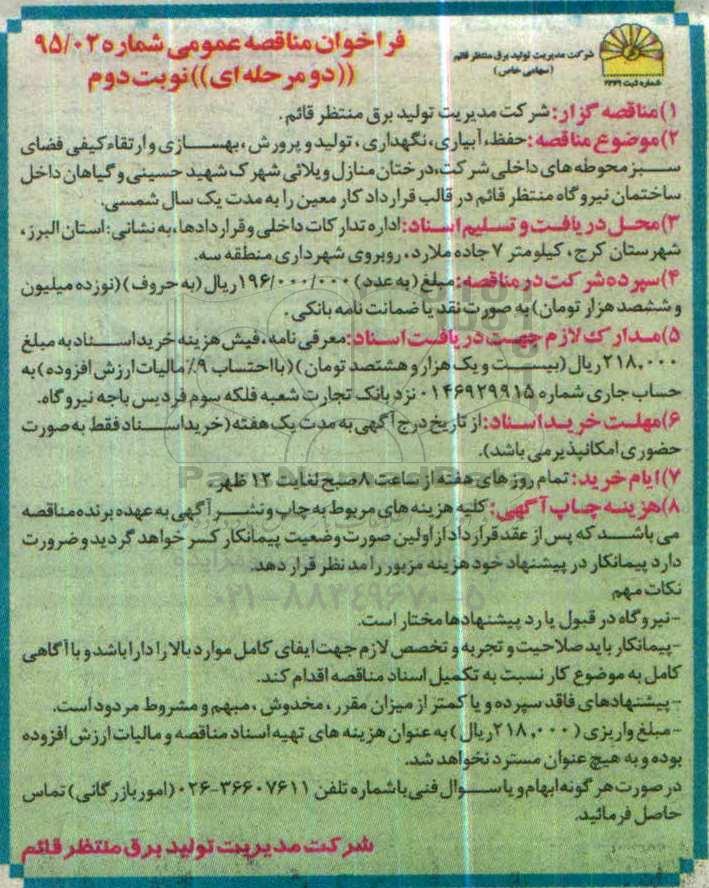 فراخوان مناقصه عمومی شماره ۹۵/۰۲
((دو مرحله ای)) نوبت دوم
شرکت مدیریت تولید برق منتظر قائم
(سهامی خاص)
شماره ثبت ۲۳۳۹
۱)مناقصه گزار: شرکت مدیریت تولید برق منتظر قائم.
۲)موضوع مناقصه: حفظ، آبیاری، نگهداری، تولید و پرورش، بهسازی و ارتقاء کیفی فضای
سبز محوطه های داخلی شرکت، درختان منازل ویلائی شهرک شهید حسینی و گیاهان داخل
ساختمان نیروگاه منتظر قائم در قالب قرارداد کار معین را به مدت یک سال شمسی.
۳)محل دریافت و تسلیم اسناد: اداره تدارکات داخلی و قراردادها، به نشانی: استان البرز،
شهرستان کرج، کیلومتر ۷ جاده ملارد، روبروی شهرداری منطقه سه.
۴)سپرده شرکت در مناقصه: مبلغ (به عدد) ۱۹۶/۰۰۰/۰۰۰ ریال (به حروف) (نوزده میلیون
و ششصد هزار تومان) به صورت نقد یا ضمانت نامه بانکی.
۵)مدارک لازم جهت دریافت اسناد: معرفی نامه، فیش هزینه خرید اسناد به مبلغ
۲۱۸,۰۰۰ ریال (بیست و یک هزار و هشتصد تومان) (با احتساب ۹٪ مالیات ارزش افزوده) به
حساب جاری شماره ۰۱۴۶۹۲۹۹۱۵ نزد بانک تجارت شعبه فلکه سوم فردیس باجه نیروگاه.
۶)مهلت خرید اسناد: از تاریخ درج آگهی به مدت یک هفته (خرید اسناد فقط به صورت
حضوری امکانپذیر می باشد).
۷)ایام خرید: تمام روزهای هفته از ساعت ۸ صبح لغایت ۱۲ ظهر.
۸)هزینه چاپ آگهی: کلیه هزینه های مربوط به چاپ و نشر آگهی به عهده برنده مناقصه
می باشد که پس از عقد قرارداد از اولین صورت وضعیت پیمانکار کسر خواهد گردید و ضرورت
دارد پیمانکار در پیشنهاد خود هزینه مزبور را مد نظر قرار دهد.
نکات مهم
-نیروگاه در قبول یا رد پیشنهادها مختار است.
-پیمانکار باید صلاحیت و تجربه و تخصص لازم جهت ایفای کامل موارد بالا را دارا باشد و با آگاهی
کامل به موضوع کار نسبت به تکمیل اسناد مناقصه اقدام کند.
-پیشنهادهای فاقد سپرده و یا کمتر از میزان مقرر، مخدوش، مبهم و مشروط مردود است.
-مبلغ واریزی (۲۱۸,۰۰۰ ریال) به عنوان هزینه های تهیه اسناد مناقصه و مالیات ارزش افزوده
بوده و به هیچ عنوان مسترد نخواهد شد.
در صورت هر گونه ابهام و یا سوال فنی با شماره تلفن ۳۶۶۰۷۶۱۱-۰۲۶ (امور بازرگانی) تماس
حاصل فرمائید.
شرکت مدیریت تولید برق منتظر قائم
ParsNamadData
۰۲۱-۸۸۳۴۹۶۷۰-۵